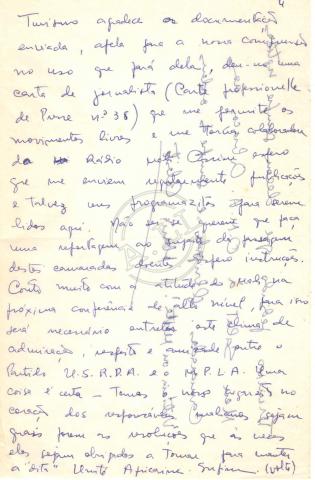 4
Turismo agradece a documentação
enviada, apela para a nossa compreensão
no uso que fará dela, deu-me uma
carta de jornalista (Carte professionelle
de Presse n.º 38) que me permite os
movimentos livres e me torna colaborador
da Rádio Mali. Assim espero
que me enviem regularmente publicações
e talvez uns programazitos para serem
lidos aqui. Não sei se querem que faça
uma reportagem ao da passagem
destes camaradas doentes. Espero instruções.
Conto muito com a atitude do Mali na
próxima conferência de alto nível, para isso
será necessário entreter este clima de
admiração, respeito e amizade entre o
Partido U.S.R.D.A. e o M.P.L.A. Uma
coisa é certa — Temos o nosso no
coração dos responsáveis malianos sejam
quais forem as resoluções que às vezes
eles sejam obrigados a tomar para manter
a "dita" Unité Africaine. (volte)